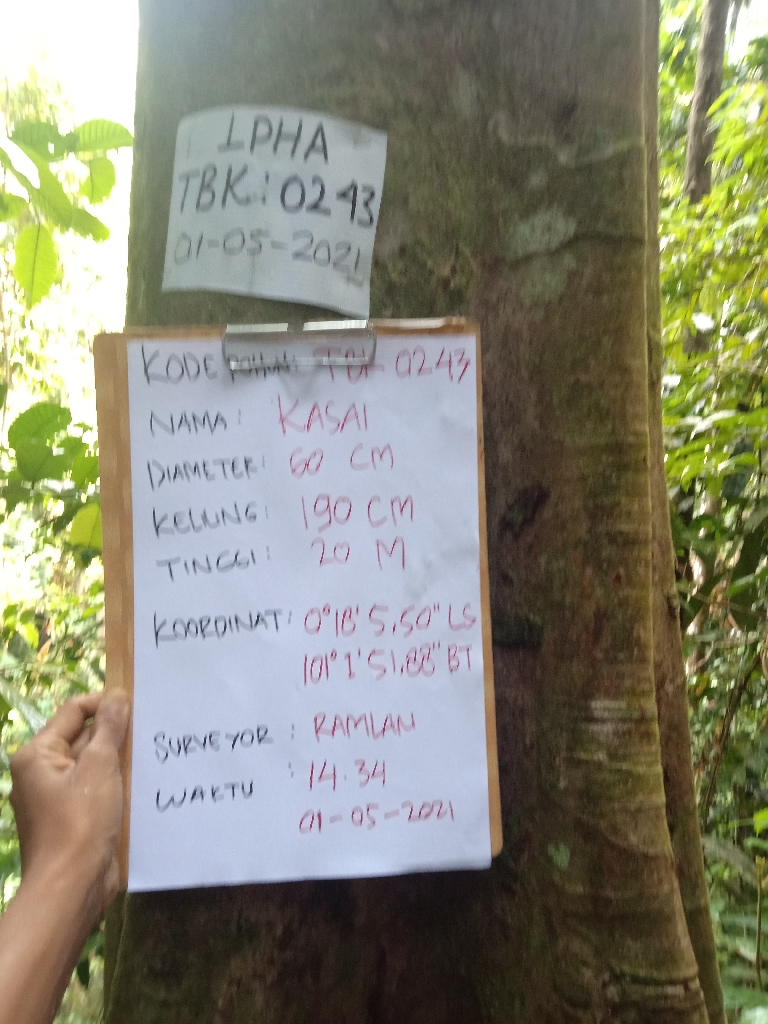 LPHA
TBK: 0243
01-05-2021
KODE POHON: TBK 0243
NAMA: KASAI
DIAMETER: 60 CM
KELUNG: 190 CM
TINGGI: 20 M
KOORDINAT: 0°18'5,50" LS
101°1'51,88" BT
SURVEYOR : RAMLAN
WAKTU : 14.34
01-05-2021